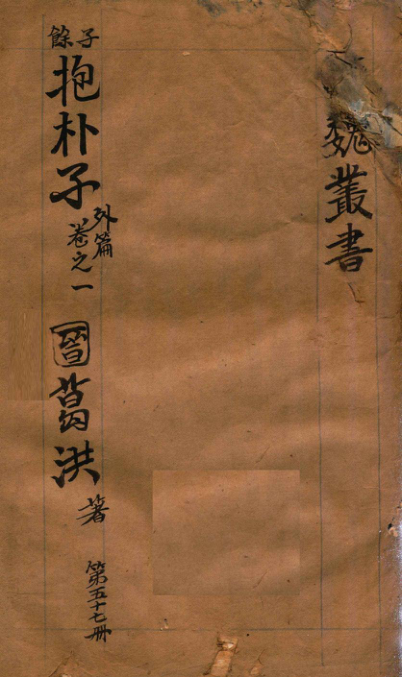 魏叢書
子餘
抱朴子
外篇
卷之一
晉葛洪著
第五十七冊